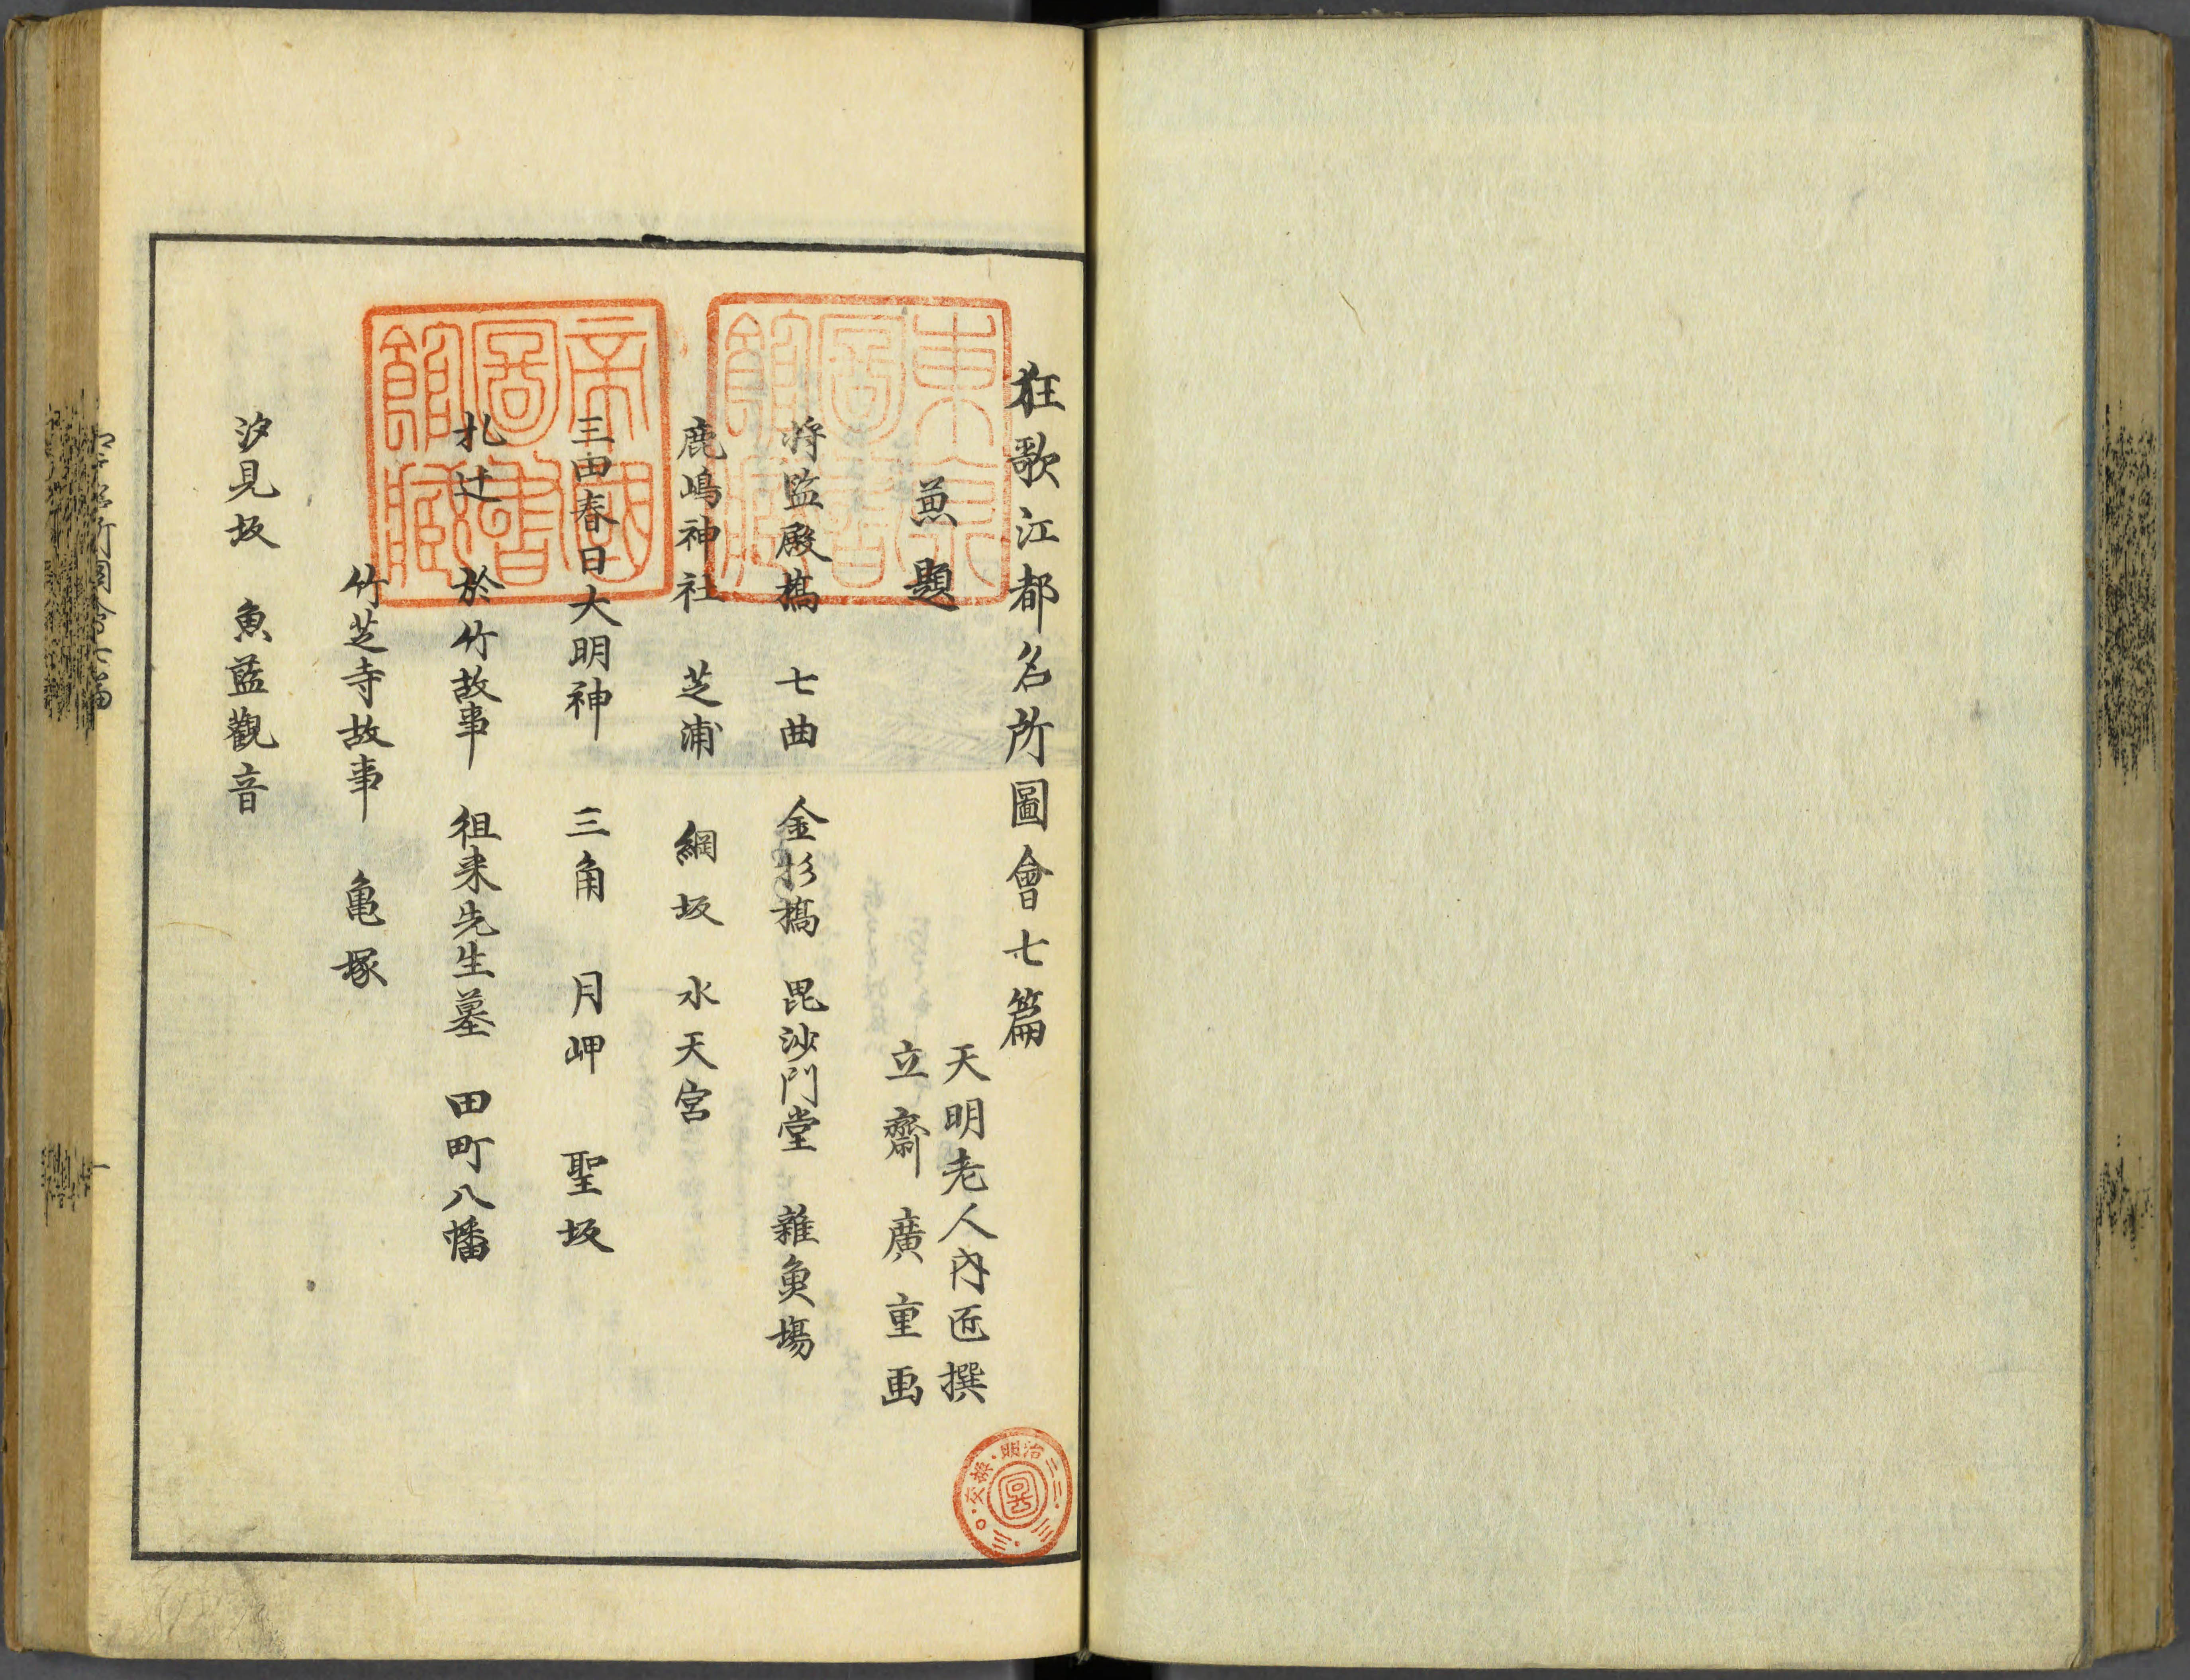 狂歌江都名所圖會七篇
天明老人内匠撰
兼題
立齋廣重画
将監殿橋　七曲　金杉橋　毘沙門堂　雜魚場
鹿嶋神社　芝浦　綱坂　水天宮
三田春日大明神　三角　月岬　聖坂
札辻　於竹故事　徂来先生墓　田町八幡
竹芝寺故事　亀塚
汐見坂　魚藍觀音
東京圖書館藏
帝國圖書館藏
圖
明治三二・三・三〇・交換・